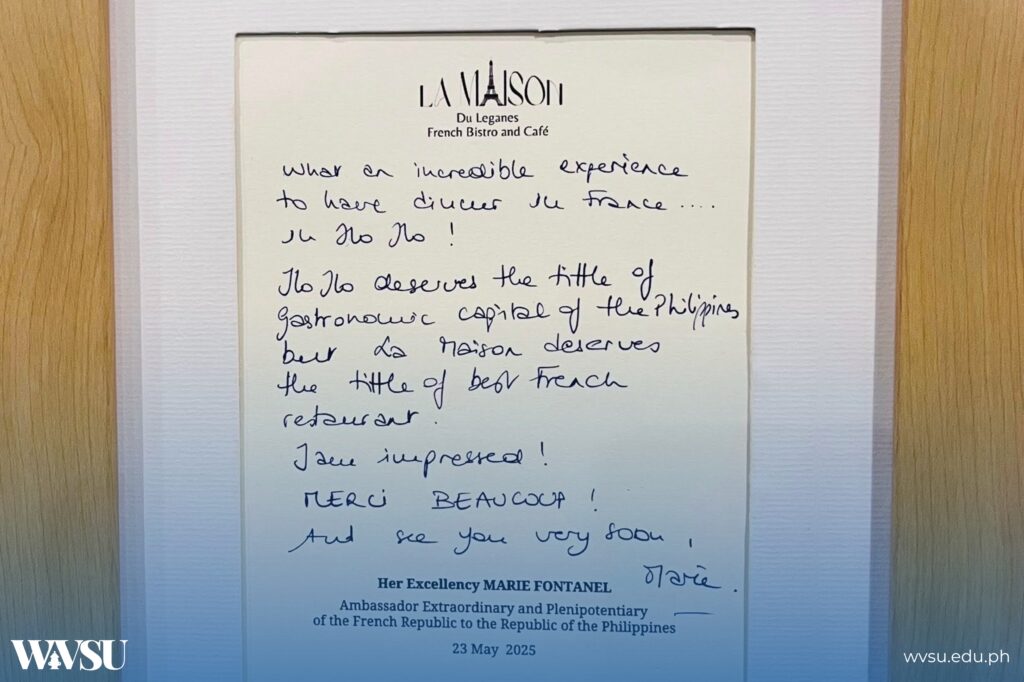 LA MAISON
Du Leganes
French Bistro and Café
What an incredible experience
to have dinner in France ....
in Ilo Ilo !
Ilo Ilo deserves the tittle of
gastronomic capital of the Philippines
but La Maison deserves
the tittle of best French
restaurant.
I am impressed !
MERCI BEAUCOUP !
And see you very soon,
Marie.
Her Excellency MARIE FONTANEL
Ambassador Extraordinary and Plenipotentiary
of the French Republic to the Republic of the Philippines
23 May 2025
WVSU
wvsu.edu.ph